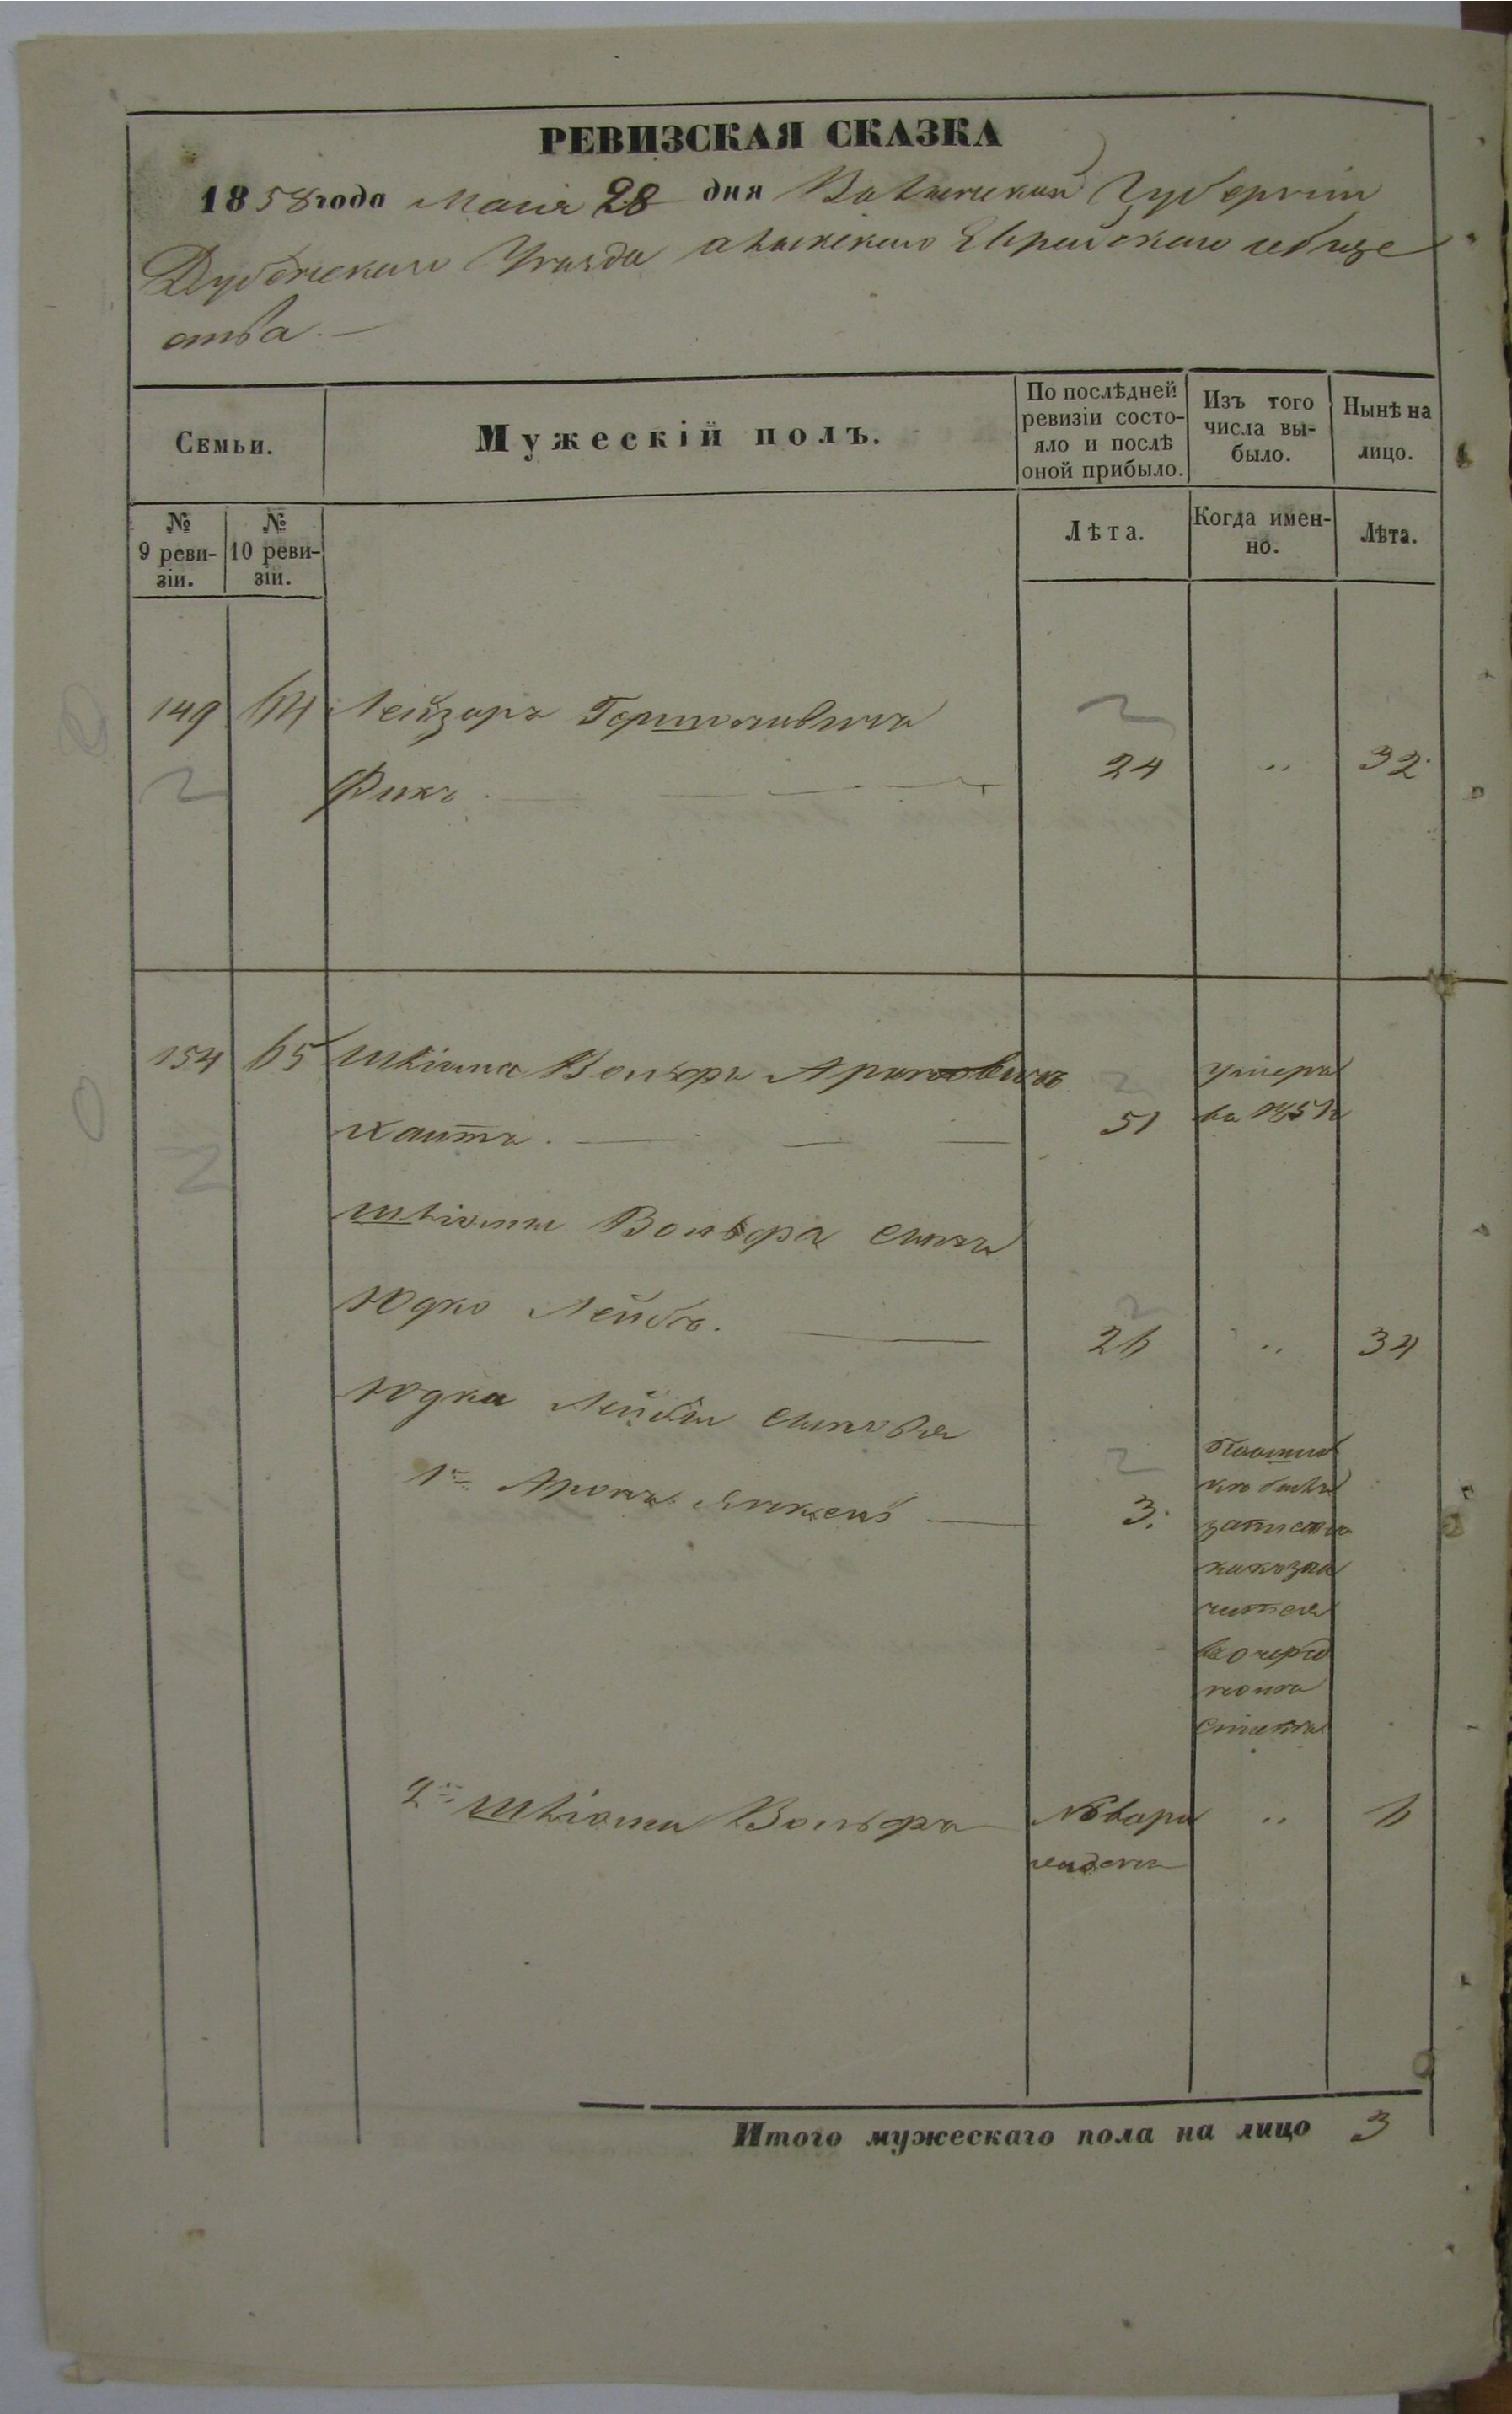 РЕВИЗСКАЯ СКАЗКА
1858 года Маія 28 дня Волынской Губерніи
Дубенскаго Уѣзда Еврейскаго обще
ства.—
Семьи.
Мужескій полъ.
По послѣдней ревизіи состо-
яло и послѣ
оной прибыло.
Изъ того
числа вы-
было.
Нынѣ на
лицо.
№
9 реви-
зіи.
№
10 реви-
зіи.
Лѣта.
Когда имен-
но.
Лѣта.
149 64 Лейзаръ Гершковичъ
Фикъ 24 „ 32
154 65 Шліома Вольфъ Ароновичъ умеръ
51
Шліомы Вольфа сынъ
Юдко Лейба. 26 „ 34
Юдка Лейбы сыновья
1й Аронъ 3.
2й Шліома Вольфъ Новоро „ 6
жденъ
Итого мужескаго пола на лицо 3